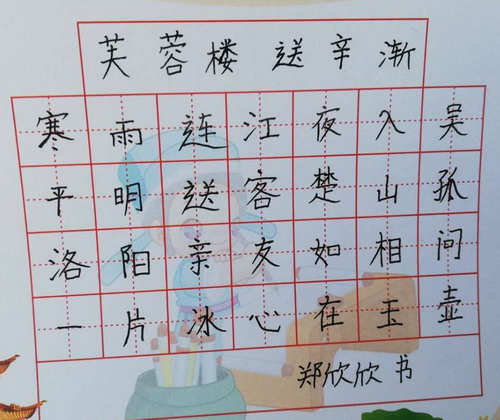 芙蓉楼 送辛渐
寒雨连江夜入吴
平明送客楚山孤
洛阳亲友如相问
一片冰心在玉壶
郑欣欣 书